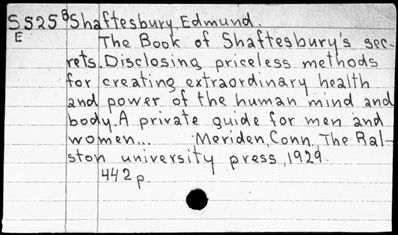 S525 B Shaftesbury, Edmund.
E
The Book of Shaftesbury's sec-
rets. Disclosing priceless methods
for creating extraordinary health
and power of the human mind and
body. A private guide for men and
women... Meriden, Conn., The Ral-
ston university press, 1929.
442 p.